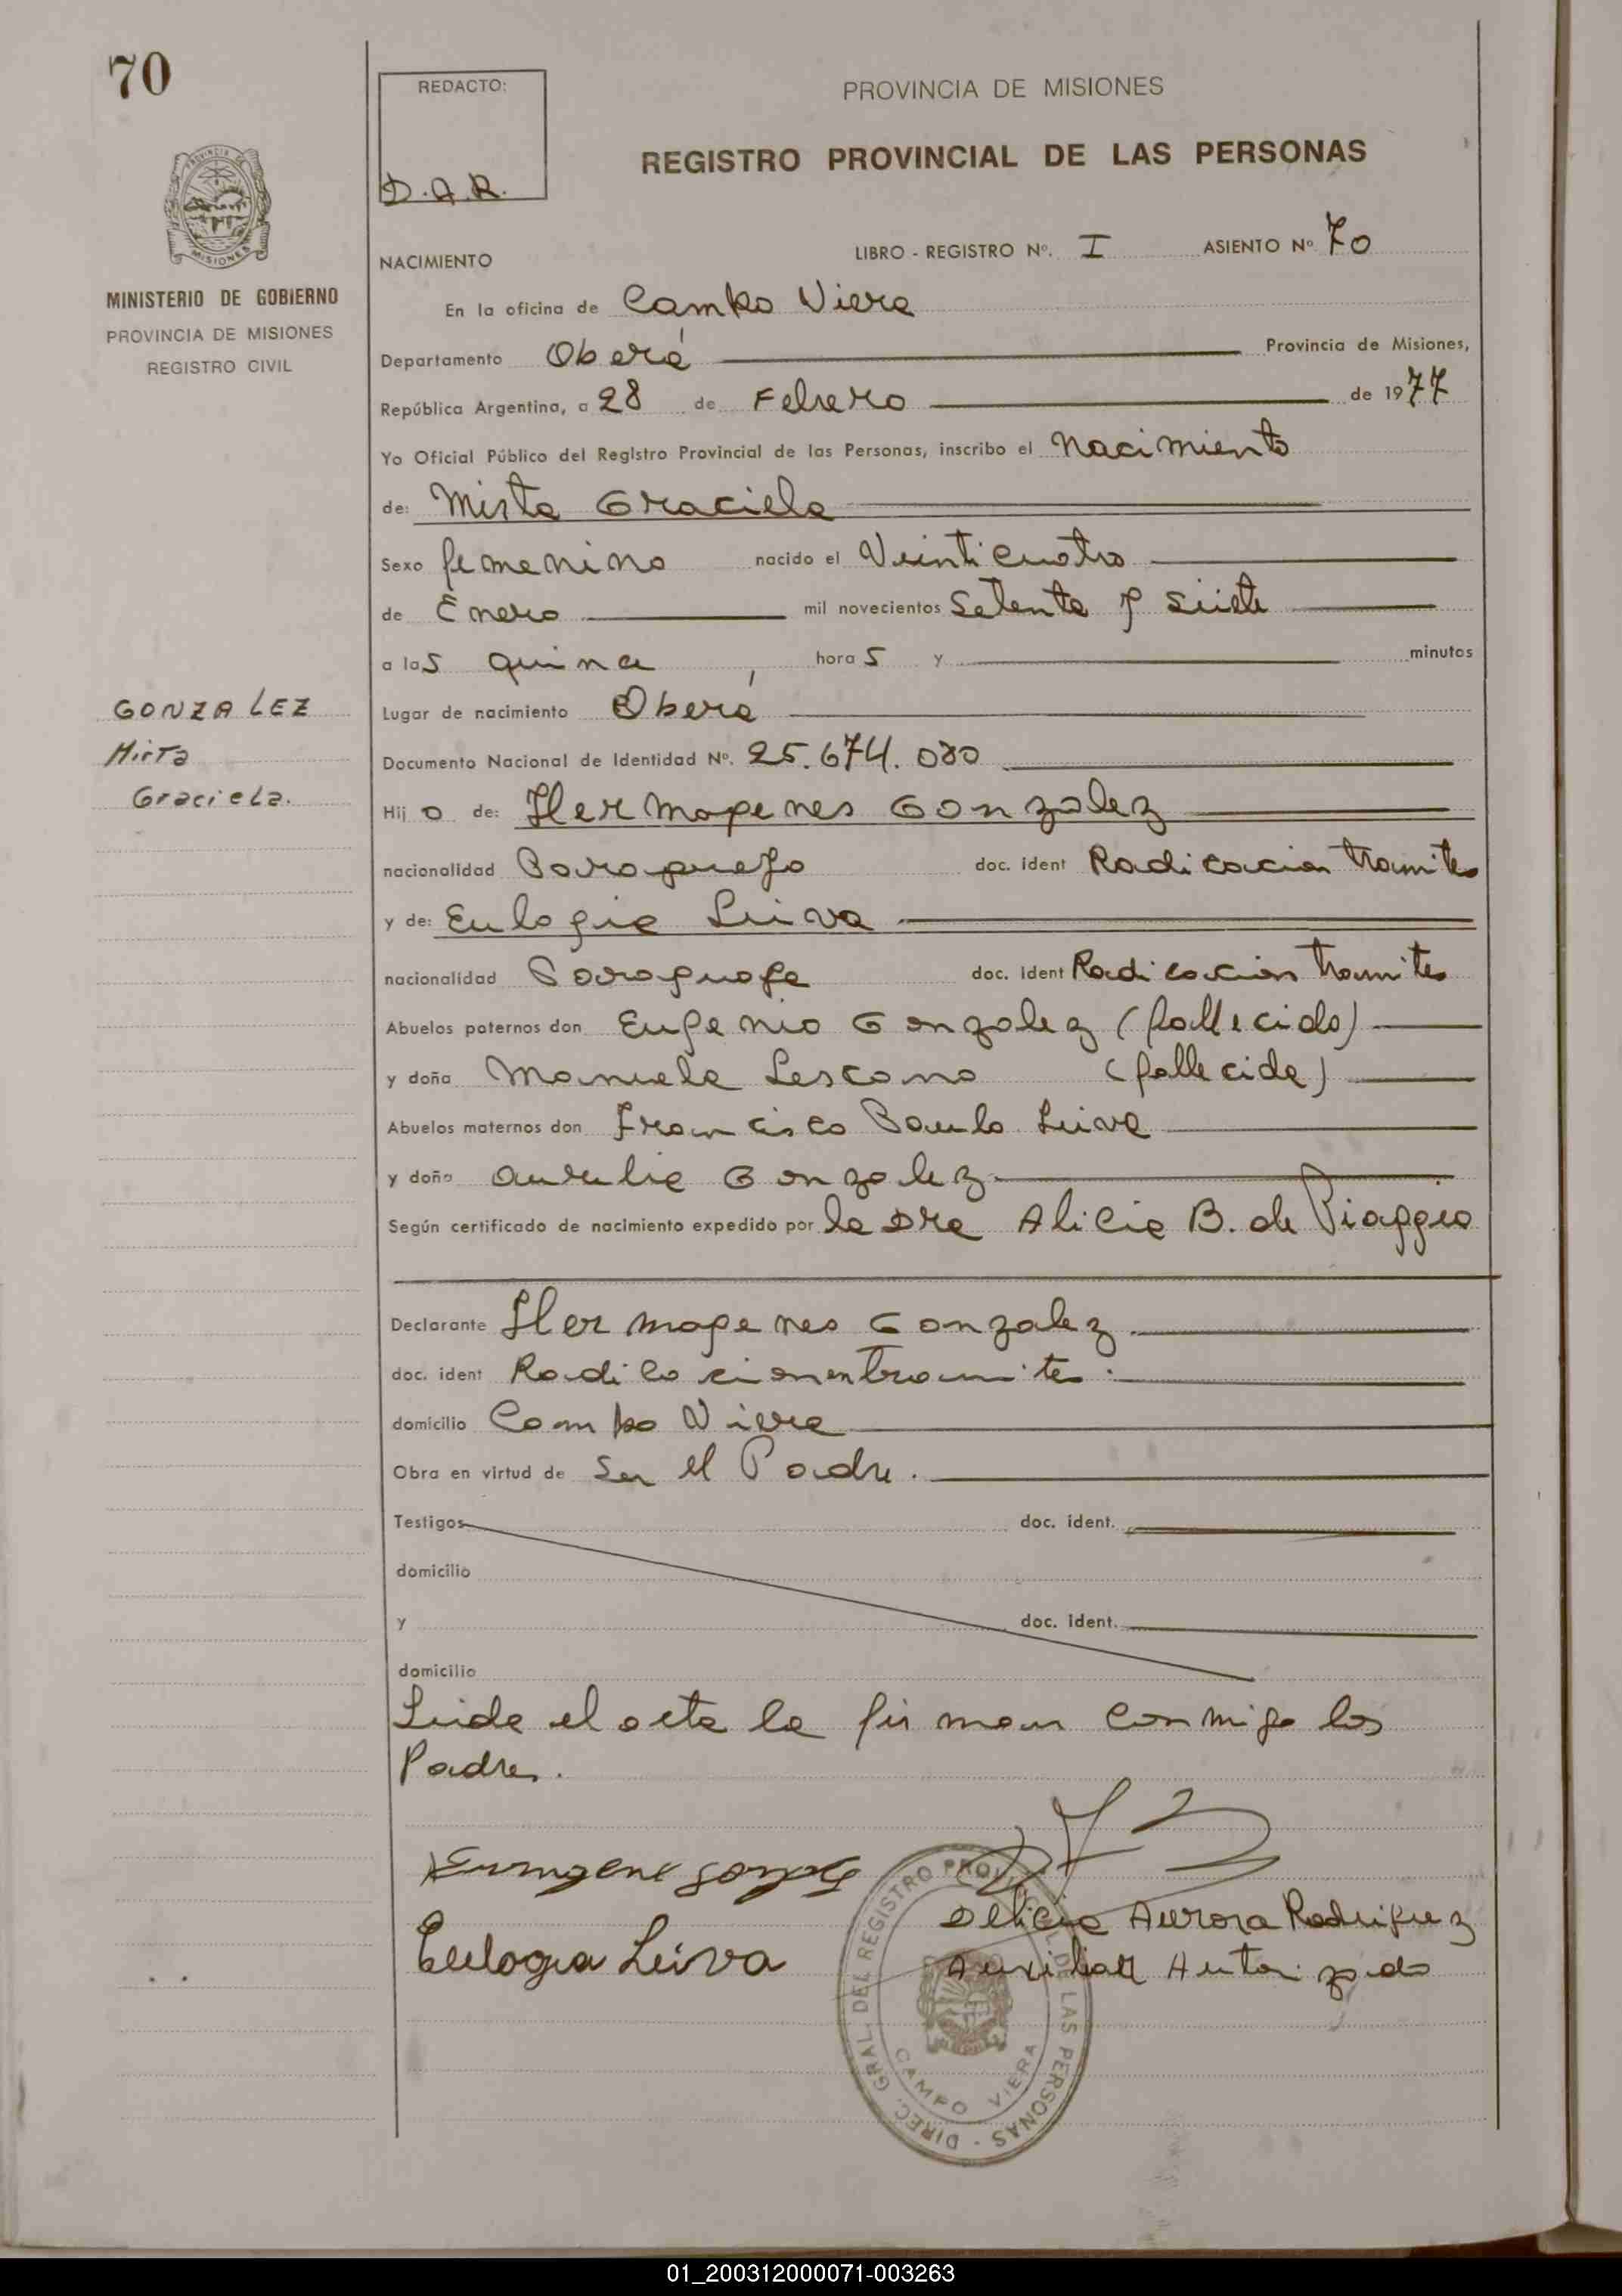 70
REDACTO:
D.A.R.
PROVINCIA DE MISIONES
REGISTRO PROVINCIAL DE LAS PERSONAS
PROVINCIA DE
MISIONES
MINISTERIO DE GOBIERNO
PROVINCIA DE MISIONES
REGISTRO CIVIL
NACIMIENTO LIBRO - REGISTRO Nº. I ASIENTO Nº 70
En la oficina de Campo Viera
Departamento Oberá Provincia de Misiones,
República Argentina, a 28 de Febrero de 1977
Yo Oficial Público del Registro Provincial de las Personas, inscribo el Nacimiento
de: Mirta Graciela
Sexo femenino nacido el Veinticuatro
de Enero mil novecientos Setenta y Siete
a las quince horas y minutos
GONZALEZ
Mirta
Graciela.
Lugar de nacimiento Oberá
Documento Nacional de Identidad Nº. 25.674.080
Hij o de: Hermogenes Gonzalez
nacionalidad Paraguayo doc. ident Radicacion tramites
y de: Eulogia Leiva
nacionalidad Paraguaya doc. ident Radicacion tramites
Abuelos paternos don Eugenio Gonzalez (fallecido)
y doña Manuela Lescano (fallecida)
Abuelos maternos don Francisco Paulo Leiva
y doña Aurelia Gonzalez
Según certificado de nacimiento expedido por la Dra Alicia B. de Piaggio
Declarante Hermogenes Gonzalez
doc. ident Radicacion en tramites
domicilio Campo Viera
Obra en virtud de Ser el Padre.
Testigos doc. ident.
domicilio
y doc. ident.
domicilio
Leida el acta la firman conmigo los
Padres.
Eulogia Leiva
Delicia Aurora Rodriguez
Auxiliar Autorizado
DIREC. GRAL. DEL REGISTRO PROVINCIAL DE LAS PERSONAS
CAMPO VIERA
01_200312000071-003263